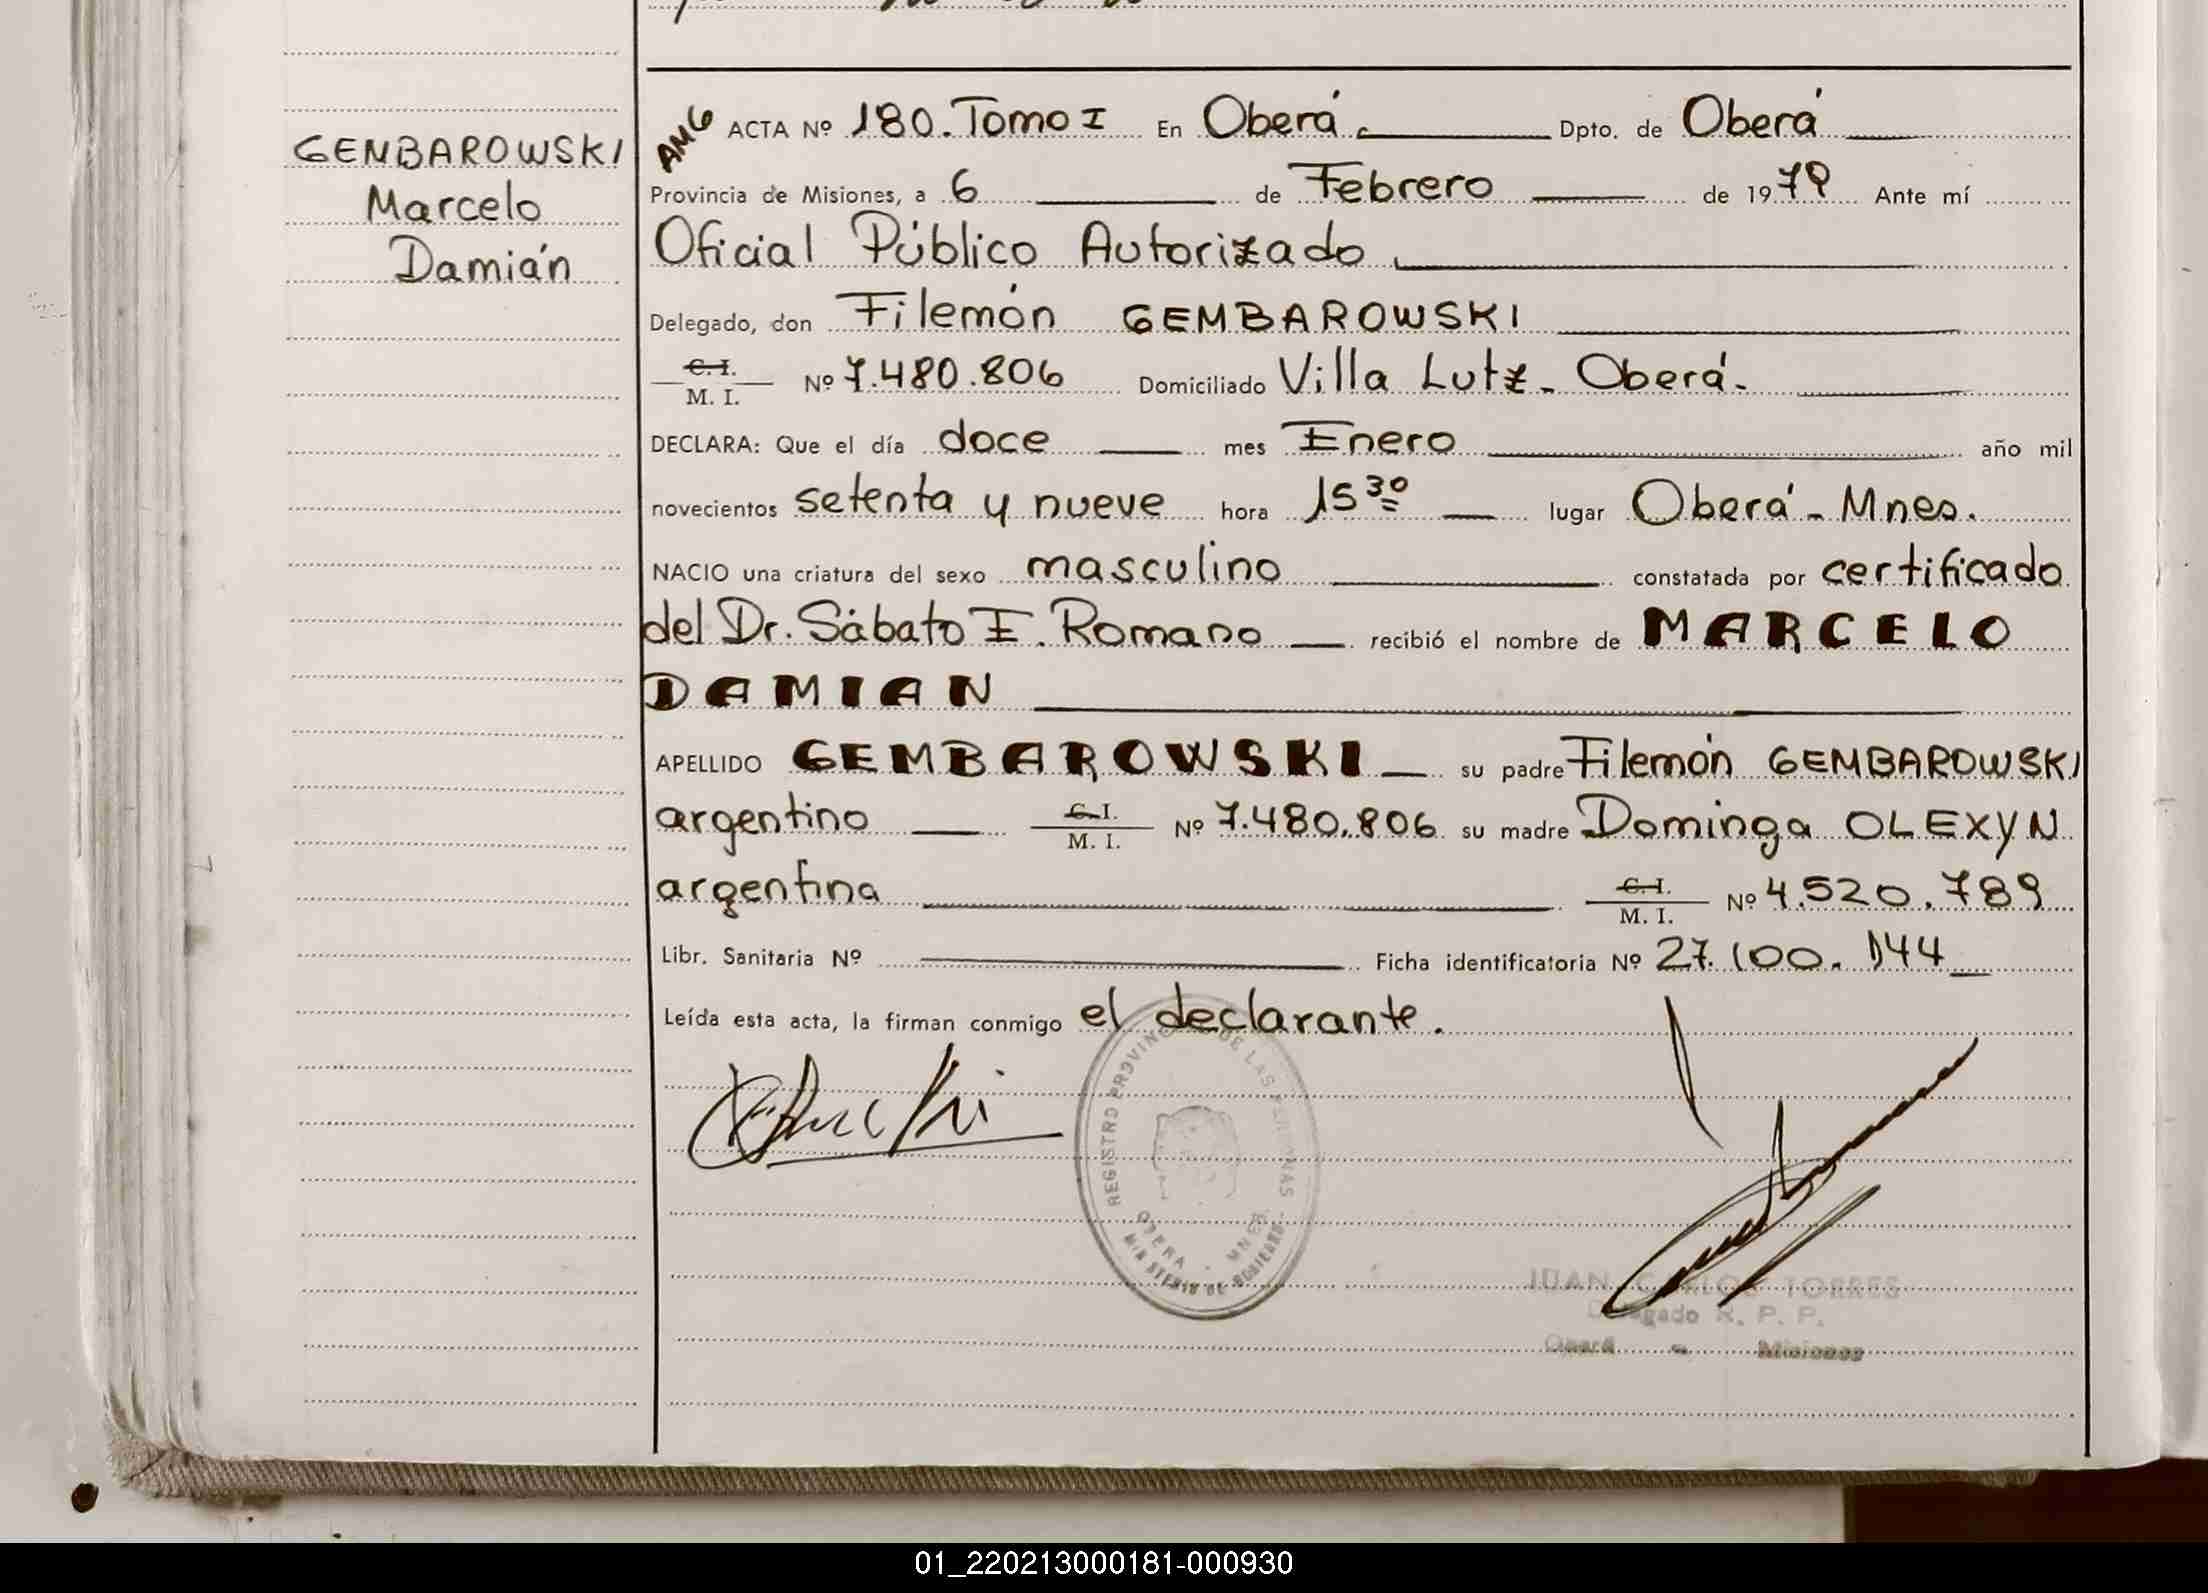 GEMBAROWSKI
Marcelo
Damián
AMG ACTA Nº 180. Tomo I En Oberá. Dpto. de Oberá
Provincia de Misiones, a 6 de Febrero de 1979 Ante mí
Oficial Público Autorizado
Delegado, don Filemón GEMBAROWSKI
C. I.
M. I. Nº 7.480.806 Domiciliado Villa Lutz - Oberá.
DECLARA: Que el día doce mes Enero año mil
novecientos setenta y nueve hora 15 30 lugar Oberá - Mnes.
NACIO una criatura del sexo masculino constatada por certificado
del Dr. Sábato E. Romano recibió el nombre de MARCELO
DAMIAN
APELLIDO GEMBAROWSKI su padre Filemón GEMBAROWSKI
argentino C. I.
M. I. Nº 7.480.806 su madre Dominga OLEXYN
argentina C. I.
M. I. Nº 4.520.789
Libr. Sanitaria Nº Ficha identificatoria Nº 27.100.144
Leída esta acta, la firman conmigo el declarante.
REGISTRO PROVINCIAL DE LAS PERSONAS
OBERA - MNES.
MINISTERIO DE GOBIERNO
JUAN CARLOS TORRES
Delegado R. P. P.
Oberá - Misiones
01_220213000181-000930